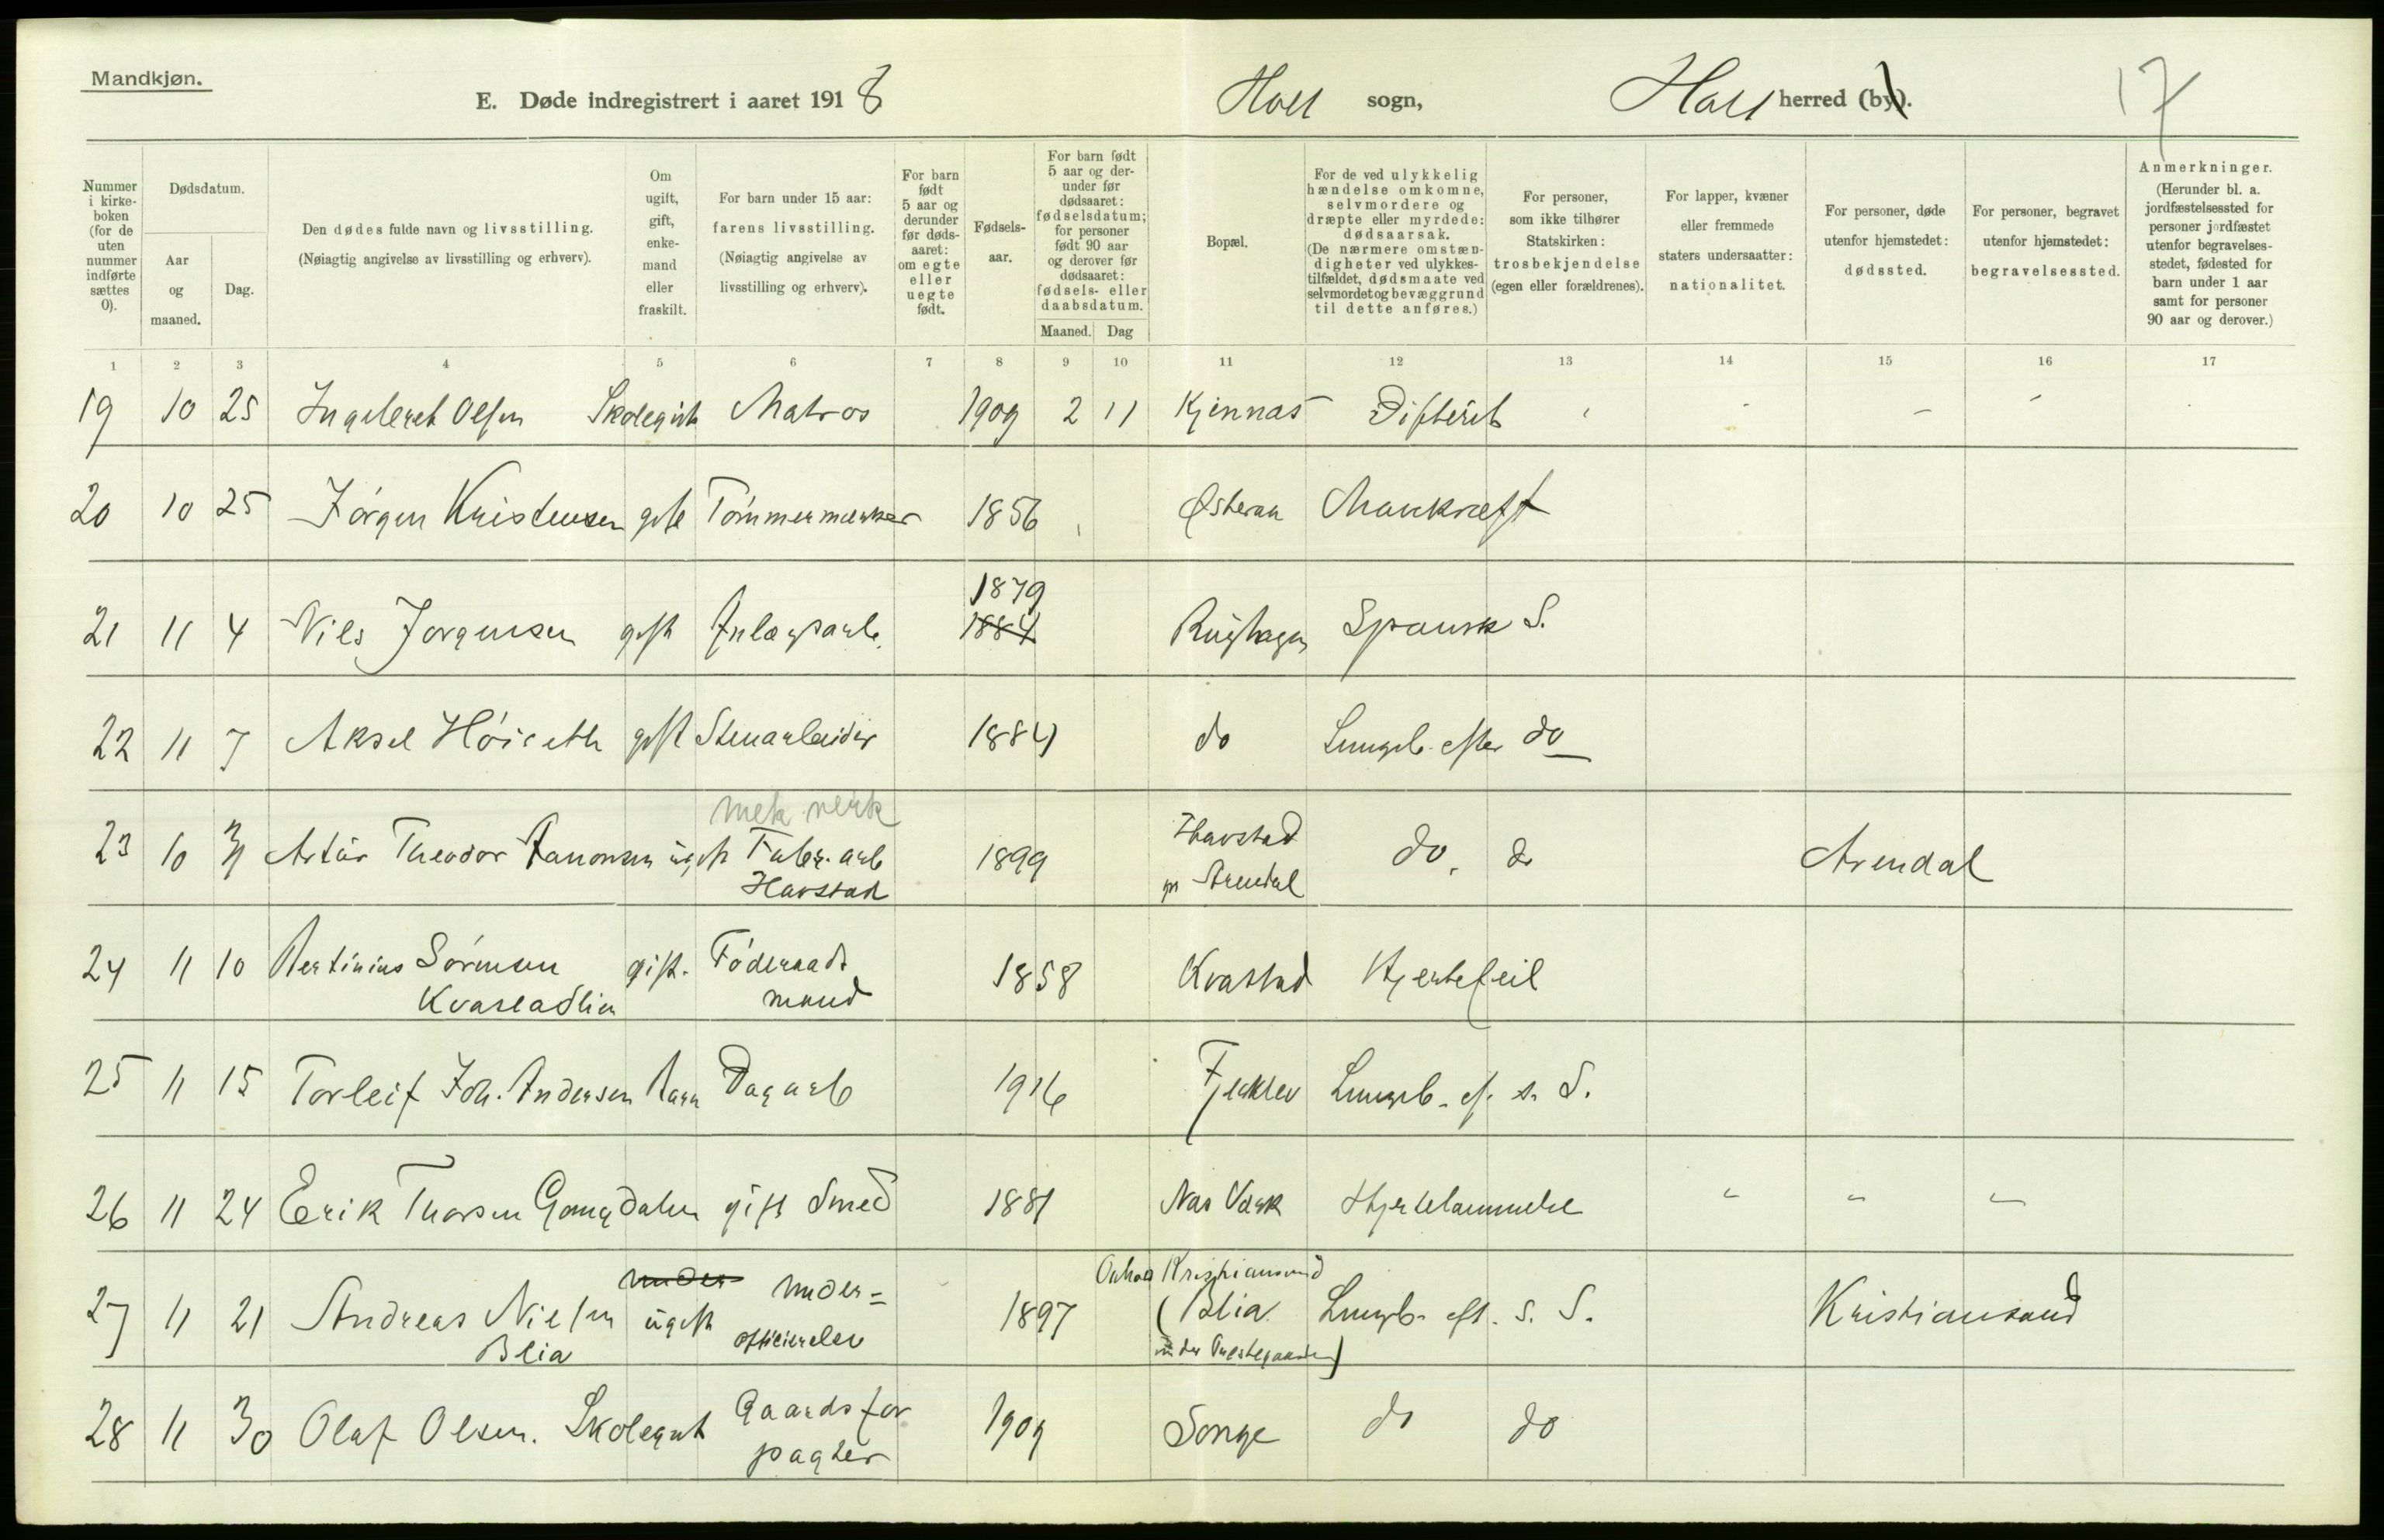 Mandkjøn.
E. Døde indregistrert i aaret 1918 Holt sogn, Holt herred (by). 17
Nummer i kirkeboken (for de uten nummer indførte sættes 0).
Dødsdatum.
Aar og maaned.
Dag.
Den dødes fulde navn og livsstilling.
(Nøiagtig angivelse av livsstilling og erhverv).
Om ugift, gift, enkemand eller fraskilt.
For barn under 15 aar: farens livsstilling.
(Nøiagtig angivelse av livsstilling og erhverv).
For barn født 5 aar og derunder før dødsaaret: om egte eller uegte født.
Fødselsaar.
For barn født 5 aar og derunder før dødsaaret: fødselsdatum; for personer født 90 aar og derover før dødsaaret: fødsels- eller daabsdatum.
Maaned. Dag
Bopæl.
For de ved ulykkelig hændelse omkomne, selvmordere og dræpte eller myrdede: dødsaarsak.
(De nærmere omstændigheter ved ulykkestilfældet, dødsmaate ved selvmordet og bevæggrund til dette anføres.)
For personer, som ikke tilhører Statskirken: trosbekjendelse (egen eller forældrenes).
For lapper, kvæner eller fremmede staters undersaatter: nationalitet.
For personer, døde utenfor hjemstedet: dødssted.
For personer, begravet utenfor hjemstedet: begravelsessted.
Anmerkninger.
(Herunder bl. a. jordfæstelsessted for personer jordfæstet utenfor begravelsesstedet, fødested for barn under 1 aar samt for personer 90 aar og derover.)
1 2 3 4 5 6 7 8 9 10 11 12 13 14 15 16 17
19 10 25 Ingebret Olsen Skolegut Matros 1909 2 11 Kjennas Difterit
20 10 25 Jörgen Kristensen gift Tömmermansker 1856 Østeraa Mavekræft
1879
21 11 4 Nils Jorgensen gift 1884 Ringhagen Spansk S.
22 11 7 Aksel Höiseth gift Stenarbeider 1884 do Lungeb. efter do
mek verk
23 10 31 Artur Theodor Aanonsen ugift Fabr. arb 1899 Havstad do. do Arendal
Havstad pr Arendal
24 11 10 Bertinius Sörensen gift. Föderaads 1858 Kvastad Hjertefeil
Kvastadlien mand
25 11 15 Torleif Joh. Andersen Barn Dagarb 1916 Fjeldlev Lungeb. ef. s. S.
26 11 24 Erik Thorsen Gongdalen gift Smed 1881 Nas Værk Hjertelammelse
under under= Kristiansand
27 11 21 Andreas Nielsen ugift 1897 (Blia Lungb. eft. s. S. Kristiansand
Blia officierelev under Prestegaarden)
28 11 30 Olaf Olsen. Skolegut Gaardsfor 1909 Songe do do
pagter